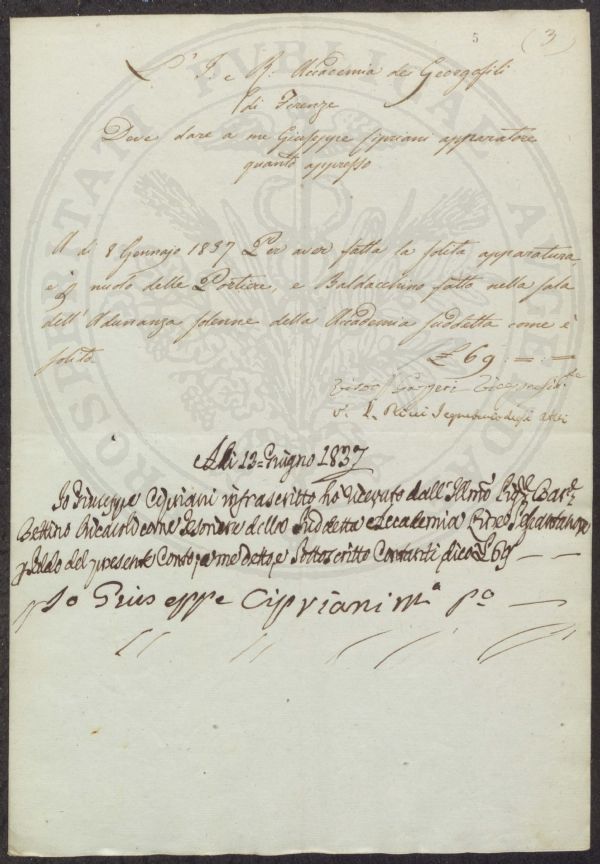 5 (3)
L' I e R. Accademia de Georgofili
di Firenze
Deve dare a me Giuseppe Cipriani apparatore
quanto appresso
A di 8 Gennajo 1837 Per aver fatta la solita apparatura
e nuolo delle Portiere, e Baldacchino fatto nella sala
dell' Adunanza solenne della Accademia suddetta come è
solito £ 69 : = : =
V. L. Ricci Segretario degli Atti
A di 13 = Giugno 1837
Io Giuseppe Cipriani infrascritto ho ricevuto dall' Illmo Sigr. Barn.
Bettino Ricasoli come Tesoriere della Suddetta Accademia Lire Sessantanove
p Saldo del presente Conto, a me detto e Sottoscritto Contanti dico £ 69 — —
Io Giuseppe Cipriani mo. po. —
PROSPERITATI PUBLICAE AUGENDAE